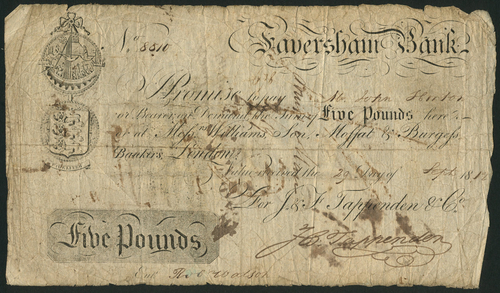 No. 8810 Faversham Bank
I Promise to pay Mr. John
or Bearer on Demand the Sum of Five Pounds here
or at Messrs. Williams, Son, Moffat & Burgess,
Bankers, London
Value received the 29 Day of Sept. 18
For J. & F. Tappenden & Co.
Five Pounds
J C Tappenden
Ent.